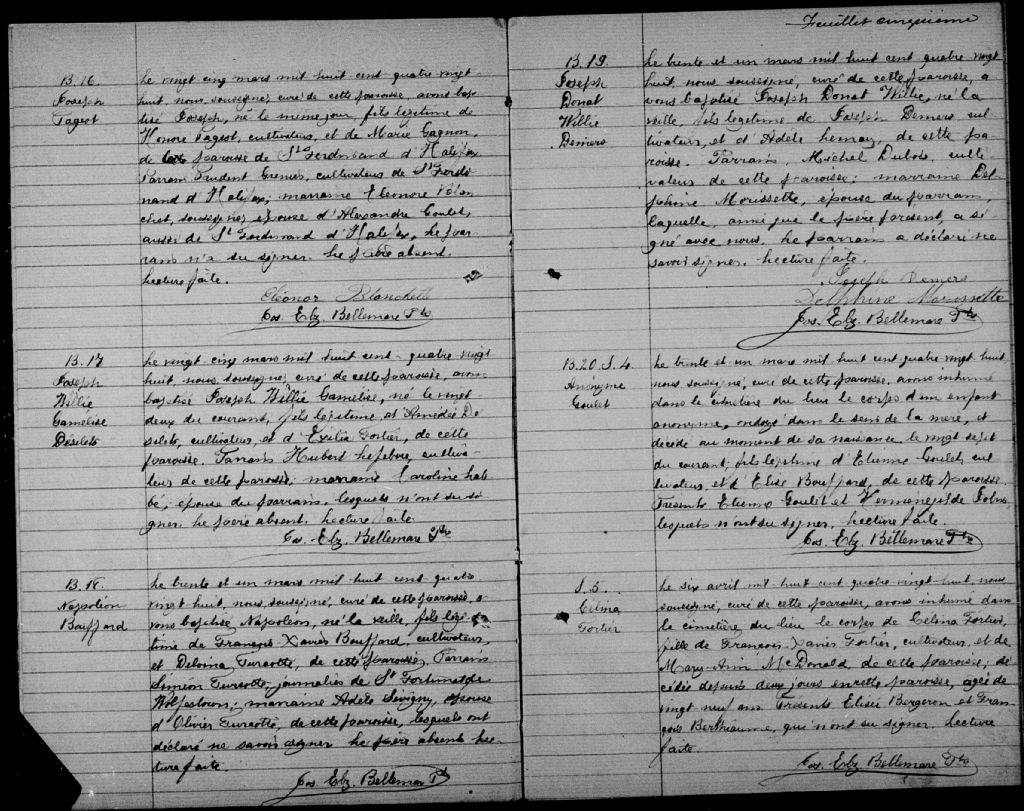 B.16
Joseph
Pageot
Le vingt cinq mars mil huit cent quatre vingt
huit, nous, soussigné, curé de cette paroisse, avons bap
tisé Joseph, né le même jour, fils légitime de
Honoré Pageot, cultivateur, et de Marie Gagnon,
de la paroisse de St Ferdinand d'Halifax
Parrain Prudent Grenier, cultivateur de St Ferdi
nand d'Halifax; marraine Eléonore Blan
chet, soussignée, épouse d'Alexandre Goulet,
aussi de St Ferdinand d'Halifax. Le par
rain n'a su signer. Le père absent.
Lecture faite.
Eléonor Blanchette
Jos. Elz. Bellemare Ptre
B.17
Joseph
Willie
Gamélise
Désilets
Le vingt cinq mars mil huit cent quatre vingt
huit, nous, soussigné, curé de cette paroisse, avons
baptisé Joseph Willie Gamélise, né le vingt
deux du courant, fils légitime d'Amédée Dé
silets, cultivateur, et d'Exilia Fortier, de cette
paroisse. Parrain Hubert Lefebvre, cultiva
teur de cette paroisse; marraine Caroline Lab
bé, épouse du parrain, lesquels n'ont su si
gner. Le père absent. Lecture faite.
Jos. Elz. Bellemare Ptre
B.18.
Napoléon
Bouffard
Le trente et un mars mil huit cent quatre
vingt huit, nous, soussigné, curé de cette paroisse, a
vons baptisé Napoléon, né la veille, fils légi
time de François Xavier Bouffard, cultivateur,
et Delvina Turcotte, de cette paroisse. Parrain
Siméon Turcotte, journalier de St Fortunat de
Wolfestown; marraine Adèle Sévigny, épouse
d'Olivier Turcotte, de cette paroisse, lesquels ont
déclaré ne savoir signer. Le père absent. Lec
ture faite.
Jos. Elz. Bellemare Pt
Feuillet cinquième
B.19.
Joseph
Donat
Willie
Demers
Le trente et un mars mil huit cent quatre vingt
huit, nous, soussigné, curé de cette paroisse, a
vons baptisé Joseph Donat Willie, né la
veille, fils légitime de Joseph Demers cul
tivateur, et d'Adèle Lemay, de cette pa
roisse. Parrain, Michel Dubois, culti
vateur de cette paroisse; marraine Del
phine Morissette, épouse du parrain,
laquelle, ainsi que le père présent, a si
gné avec nous. Le parrain a déclaré ne
savoir signer. Lecture faite.
Joseph Demers
Delphine Morissette
Jos. Elz. Bellemare Ptre
B.20 S.4
Anonyme
Goulet
Le trente et un mars mil huit cent quatre vingt huit
nous, soussigné, curé de cette paroisse, avons inhumé
dans le cimetière du lieu le corps d'un enfant
anonyme, ondoyé dans le sein de la mère, et
décédé au moment de sa naissance le vingt sept
du courant, fils légitime d'Etienne Goulet, cul
tivateur, et d'Elise Bouffard, de cette paroisse,
Présents Etienne Goulet et
lesquels n'ont su signer. Lecture faite.
Jos. Elz. Bellemare Ptre
S.5.
Célina
Fortier
Le six avril mil huit cent quatre vingt huit, nous
soussigné, curé de cette paroisse, avons inhumé dans
la cimetière du lieu le corps de Célina Fortier,
fille de François Xavier Fortier, cultivateur, et de
Mary-Ann McDonald, de cette paroisse, dé
cédée depuis deux jours en cette paroisse, agée de
vingt neuf ans. Présents Elisée Bergeron et Fran
çois Berthiaume, qui n'ont su signer. Lecture
faite.
Jos. Elz. Bellemare Ptre